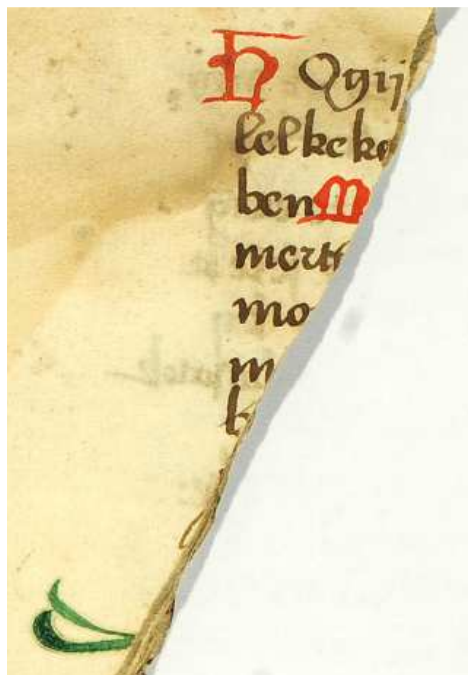 H Ogÿ
lelkeke
ben M
mert
mo
m
b